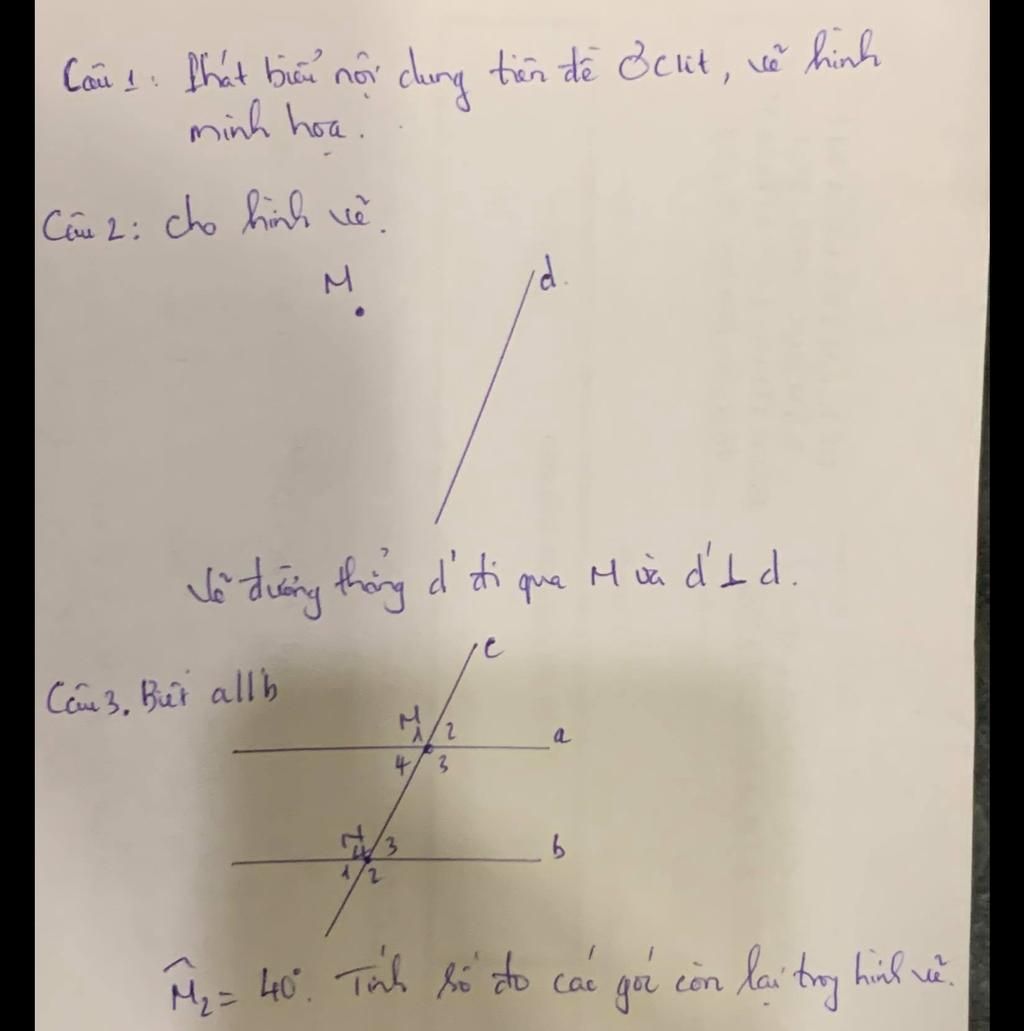 Câu 1: Phát biểu nội dung tiên đề Ơclit, vẽ hình
minh hoạ.
Câu 2: cho hình vẽ.
M
d
Vẽ đường thẳng d' đi qua M và d' ⊥ d.
c
Câu 3. Biết a//b
M
1 2
a
4 3
4 3
b
1 2
M̂₂ = 40°. Tính số đo các góc còn lại trong hình vẽ.